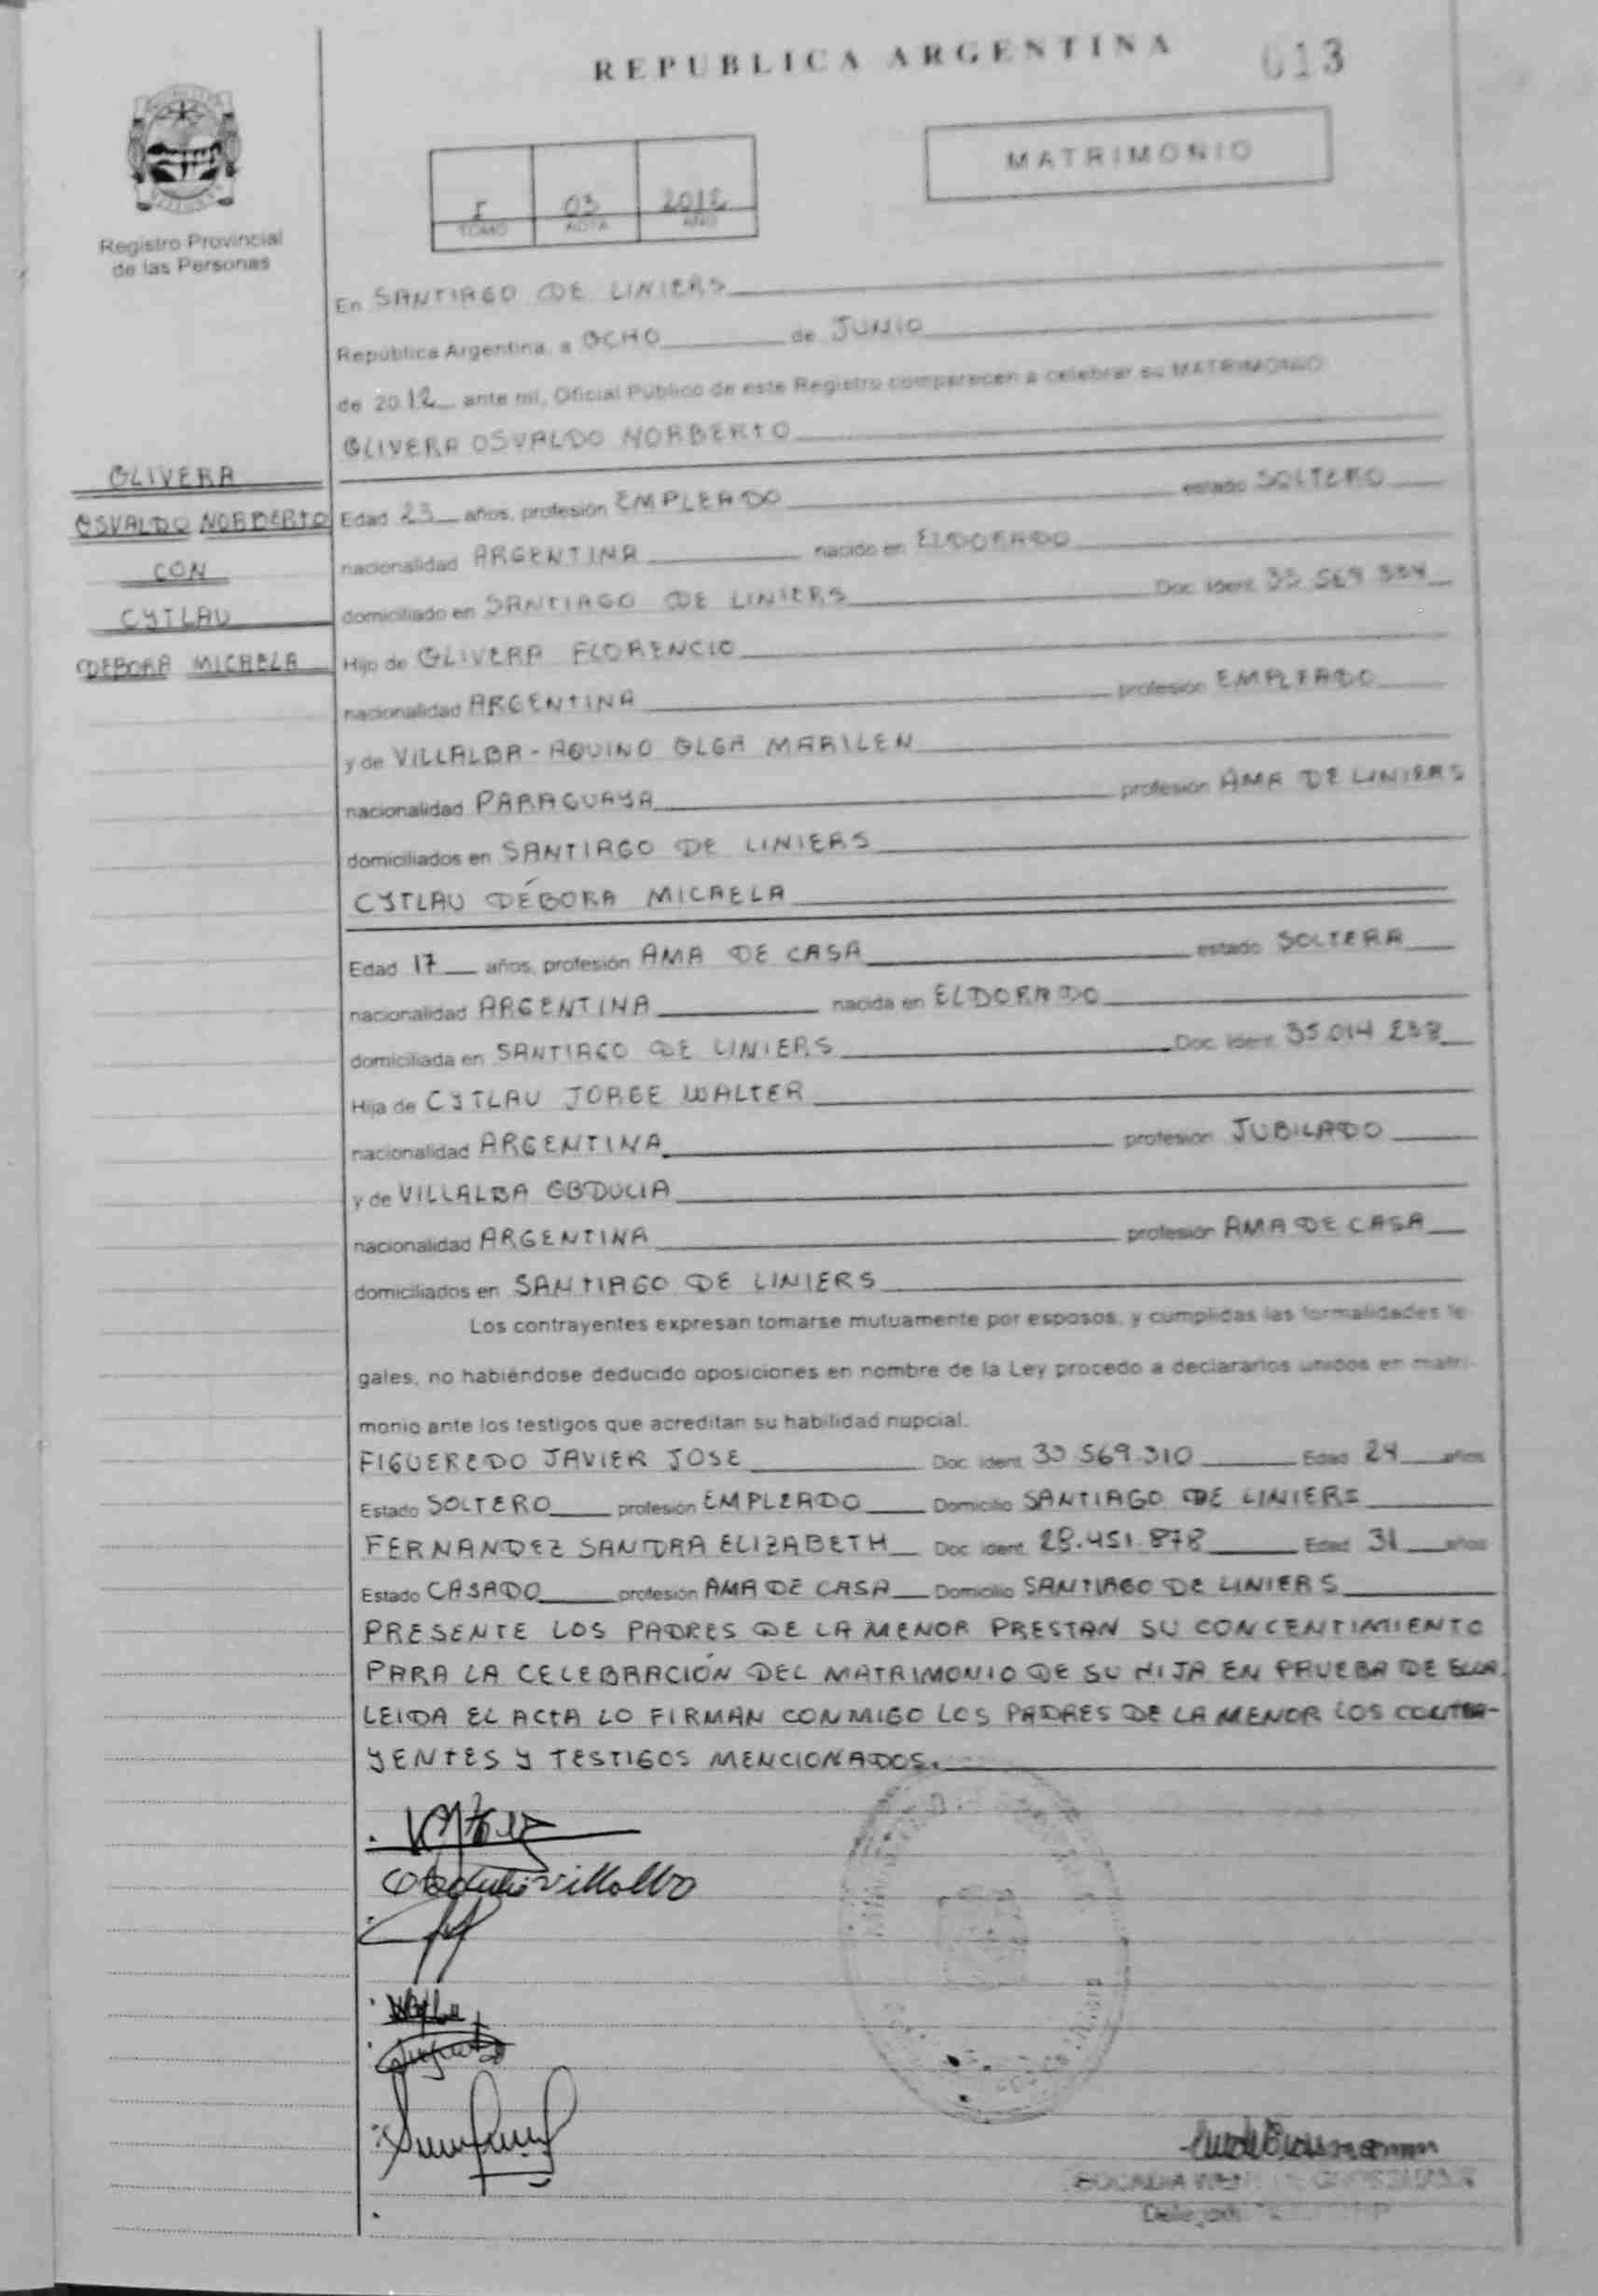 REPUBLICA ARGENTINA
013
MATRIMONIO
I 03 2012
TOMO ACTA AÑO
Registro Provincial
de las Personas
En SANTIAGO DE LINIERS
República Argentina, a OCHO de JUNIO
de 2012 ante mí, Oficial Público de este Registro comparecen a celebrar su MATRIMONIO
OLIVERA OSVALDO NORBERTO
OLIVERA
OSVALDO NORBERTO
CON
CYTLAU
DEBORA MICAELA
Edad 23 años, profesión EMPLEADO estado SOLTERO
nacionalidad ARGENTINA nacido en ELDORADO
domiciliado en SANTIAGO DE LINIERS Doc. Ident. 33 569 334
Hijo de OLIVERA FLORENCIO
nacionalidad ARGENTINA profesión EMPLEADO
y de VILLALBA - AQUINO OLGA MARILEN
nacionalidad PARAGUAYA profesión AMA DE LINIERS
domiciliados en SANTIAGO DE LINIERS
CYTLAU DÉBORA MICAELA
Edad 17 años, profesión AMA DE CASA estado SOLTERA
nacionalidad ARGENTINA nacida en ELDORADO
domiciliada en SANTIAGO DE LINIERS Doc. Ident. 35.014 238
Hija de CYTLAU JORGE WALTER
nacionalidad ARGENTINA profesión JUBILADO
y de VILLALBA OBDULIA
nacionalidad ARGENTINA profesión AMA DE CASA
domiciliados en SANTIAGO DE LINIERS
Los contrayentes expresan tomarse mutuamente por esposos, y cumplidas las formalidades le-
gales, no habiéndose deducido oposiciones en nombre de la Ley procedo a declararlos unidos en matri-
monio ante los testigos que acreditan su habilidad nupcial.
FIGUEREDO JAVIER JOSE Doc. Ident. 33 569.310 Edad 24 años
Estado SOLTERO profesión EMPLEADO Domicilio SANTIAGO DE LINIERS
FERNANDEZ SANDRA ELIZABETH Doc. Ident. 28.451.878 Edad 31 años
Estado CASADO profesión AMA DE CASA Domicilio SANTIAGO DE LINIERS
PRESENTE LOS PADRES DE LA MENOR PRESTAN SU CONCENTIMIENTO
PARA LA CELEBRACIÓN DEL MATRIMONIO DE SU HIJA EN PRUEBA DE ELLA.
LEIDA EL ACTA LO FIRMAN CONMIGO LOS PADRES DE LA MENOR LOS CONTRA-
YENTES Y TESTIGOS MENCIONADOS.
Obdulia Villalba